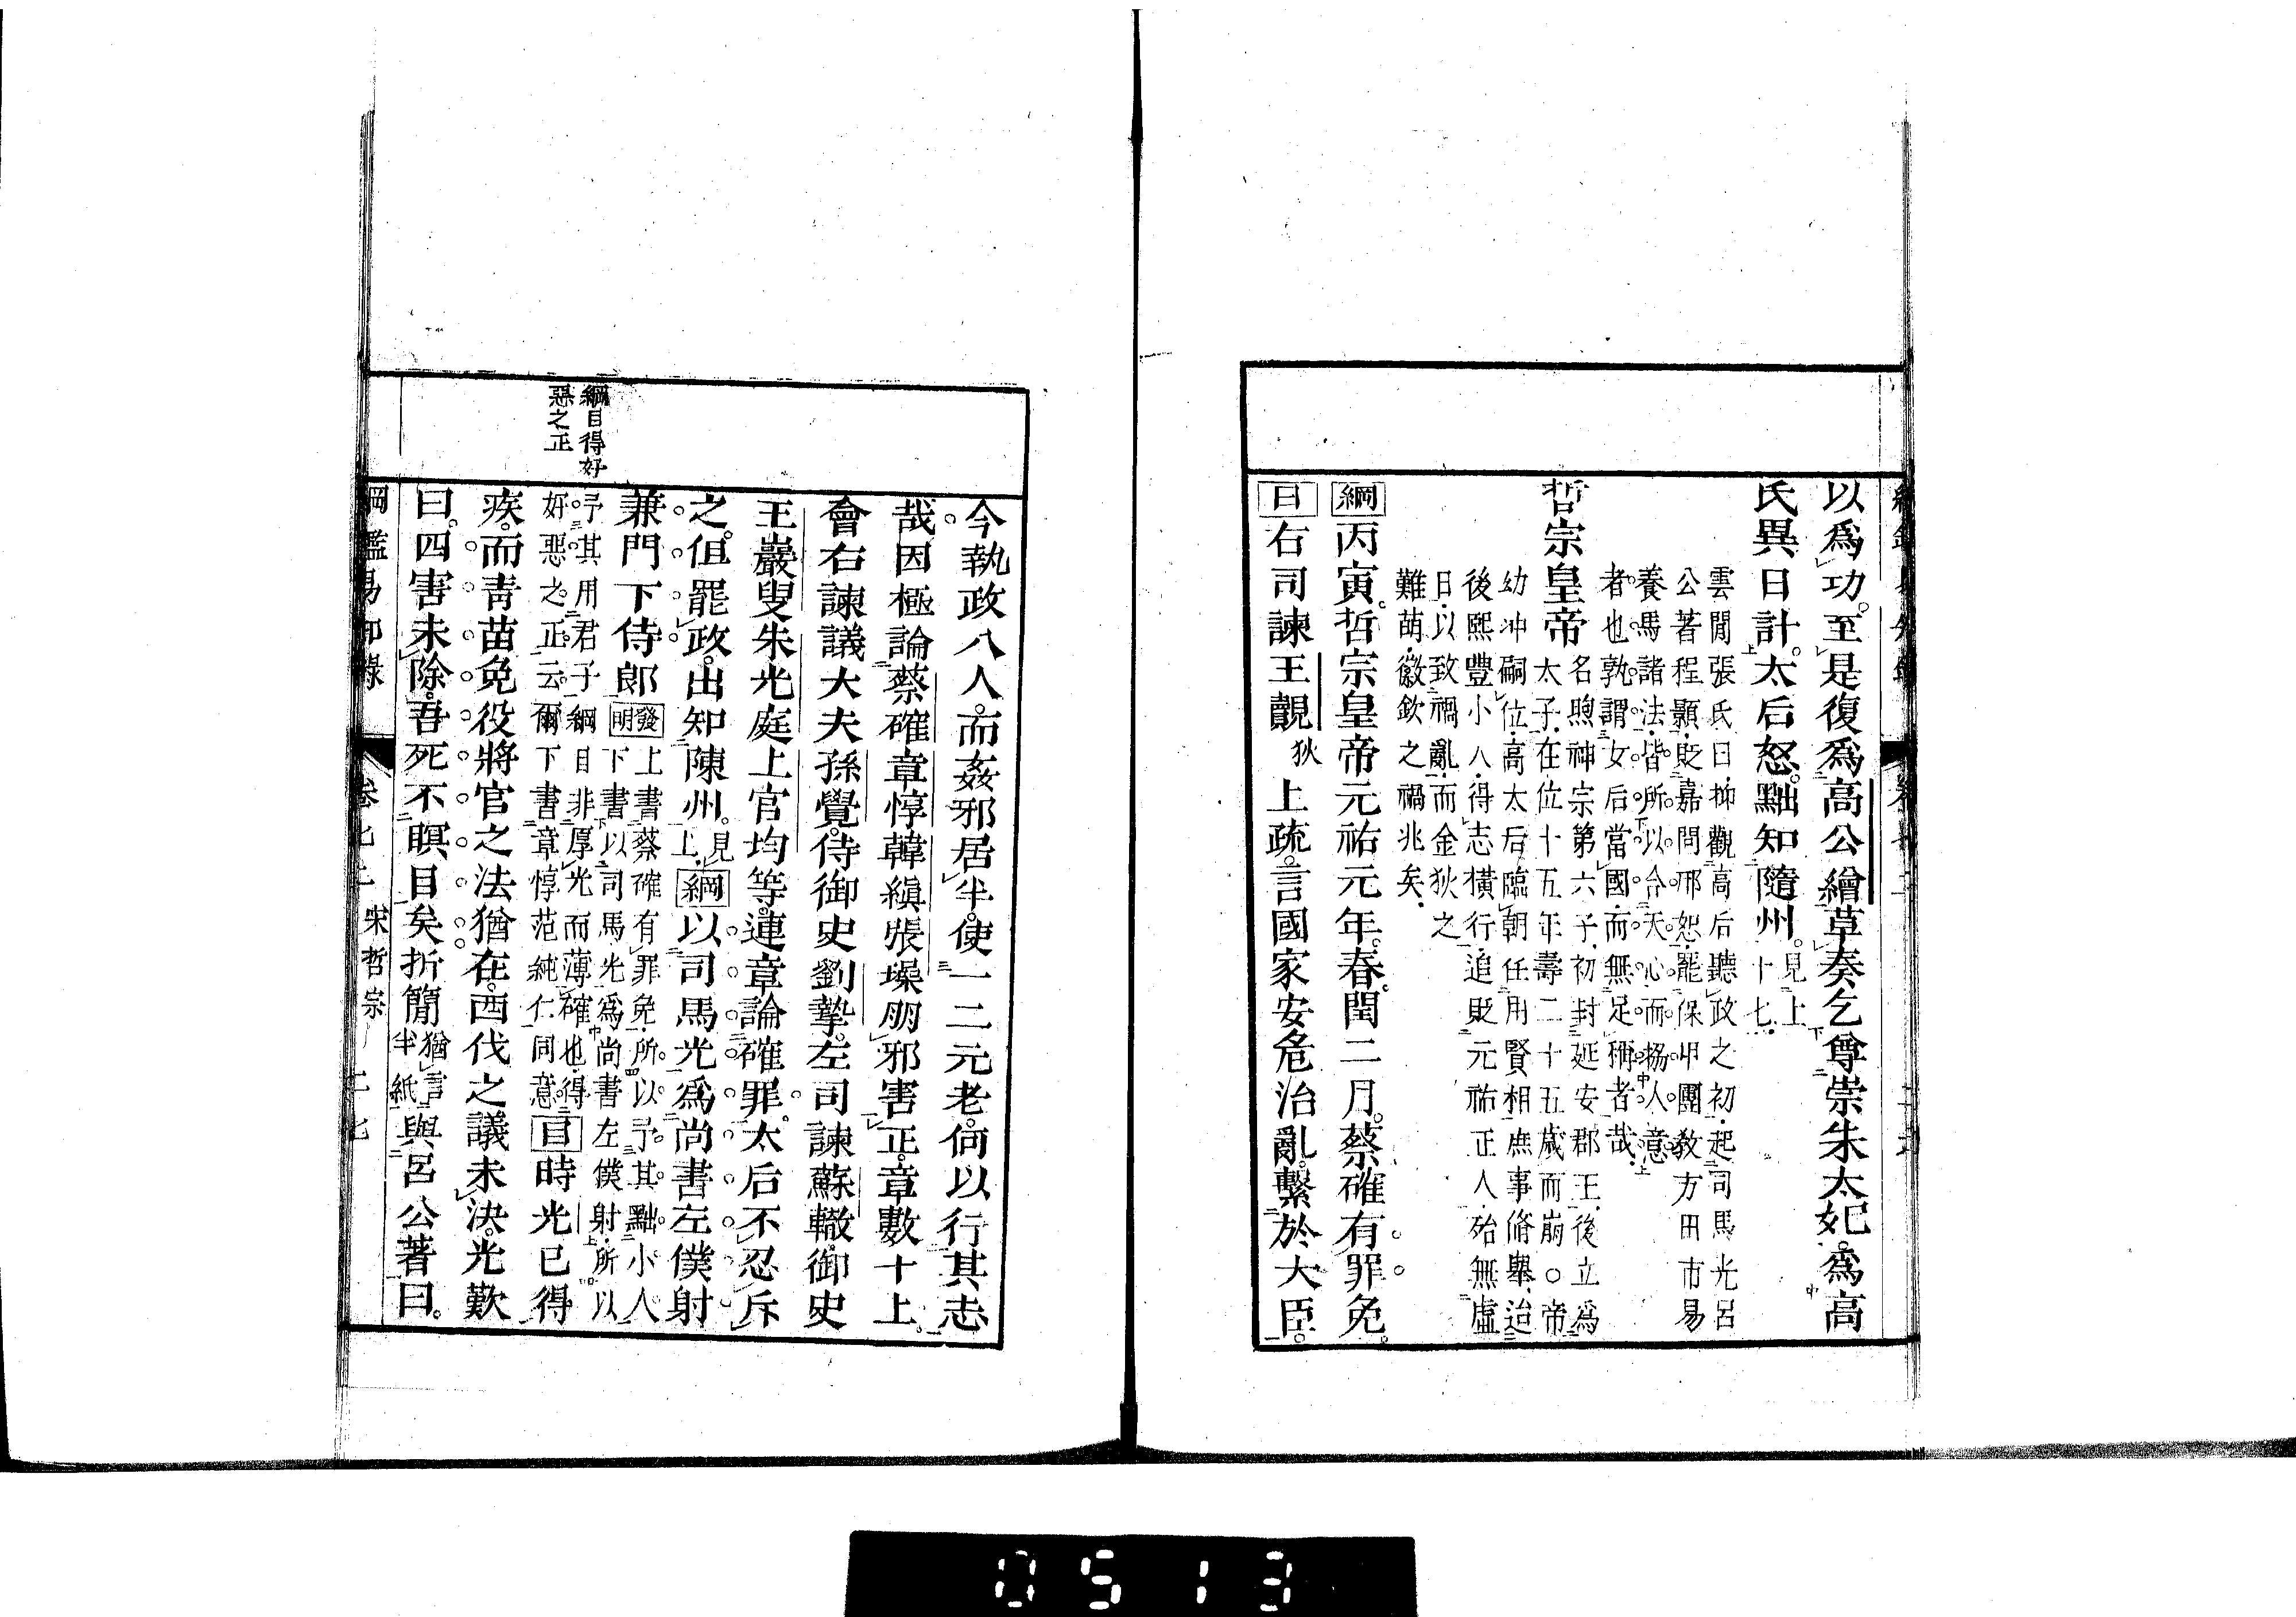 以爲功。至是復爲高公繪草奏乞尊崇朱太妃。爲高
氏異日計。太后怒。黜知隨州。見上
十七
雲閒張氏曰抑觀高后聽政之初起司馬光呂
公著程顥貶嘉問邢恕罷保甲團敎方田市易
養馬諸法皆所以合天心而協人意
者也孰謂女后當國而無足稱者哉
哲宗皇帝
名煦神宗第六子初封延安郡王後立爲
太子在位十五年壽二十五歲而崩○帝
幼冲嗣位高太后臨朝任用賢相庶事脩舉迨
後熙豐小人得志橫行追貶元祐正人殆無虛
日以致禍亂而金狄之
難萌徽欽之禍兆矣
綱丙寅。哲宗皇帝元祐元年。春。閏二月。蔡確有罪免。
目右司諫王覿狄上疏。言國家安危治亂。繫於大臣。
今執政八人。而姦邪居半。使一二元老。何以行其志
哉。因極論蔡確章惇韓縝張璪朋邪害正。章數十上。
會右諫議大夫孫覺。侍御史劉摯。左司諫蘇轍。御史
王巖叟朱光庭上官均等。連章論確罪。太后不忍斥
之。但罷政。出知陳州。見
上綱以司馬光爲尚書左僕射
兼門下侍郎
發明上書蔡確有罪免所以予其黜小人
下書以司馬光爲尚書左僕射所以
予其用君子綱目非厚光而薄確也得
好惡之正云爾下書章惇范純仁同意
目時光已得
疾。而靑苗免役將官之法猶在。西伐之議未決。光歎
曰。四害未除。吾死不瞑目矣折簡猶言
半紙與呂公著曰。
綱目得好
惡之正
綱鑑易知錄
宋哲宗
0513